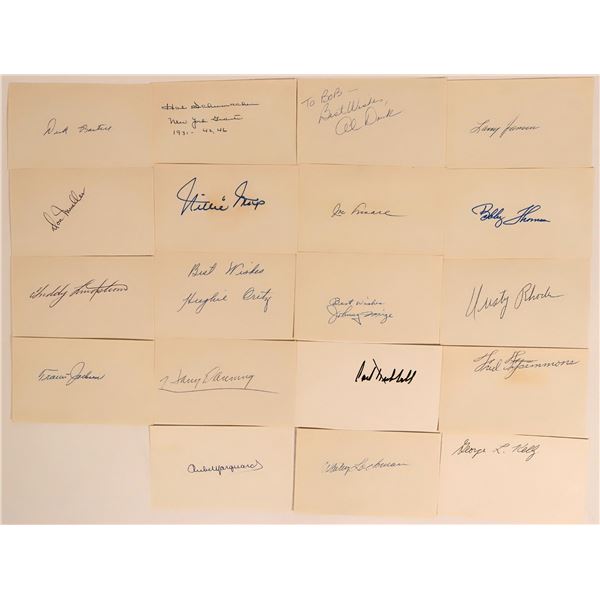 Dick Bartell
Hal Schumacher
New York Giants
1931- 42, 46
To Bob-
Best Wishes,
Al Dark
Larry Jansen
Don Mueller
Willie Mays
Bobby Thomson
Freddy Lindstrom
Best Wishes
Hughie Critz
Best Wishes
Johnny Mize
Dusty Rhodes
Travis Jackson
Harry Danning
Carl Hubbell
Fred Fitzsimmons
Rube Marquard
Whitey Lockman
George L. Kelly